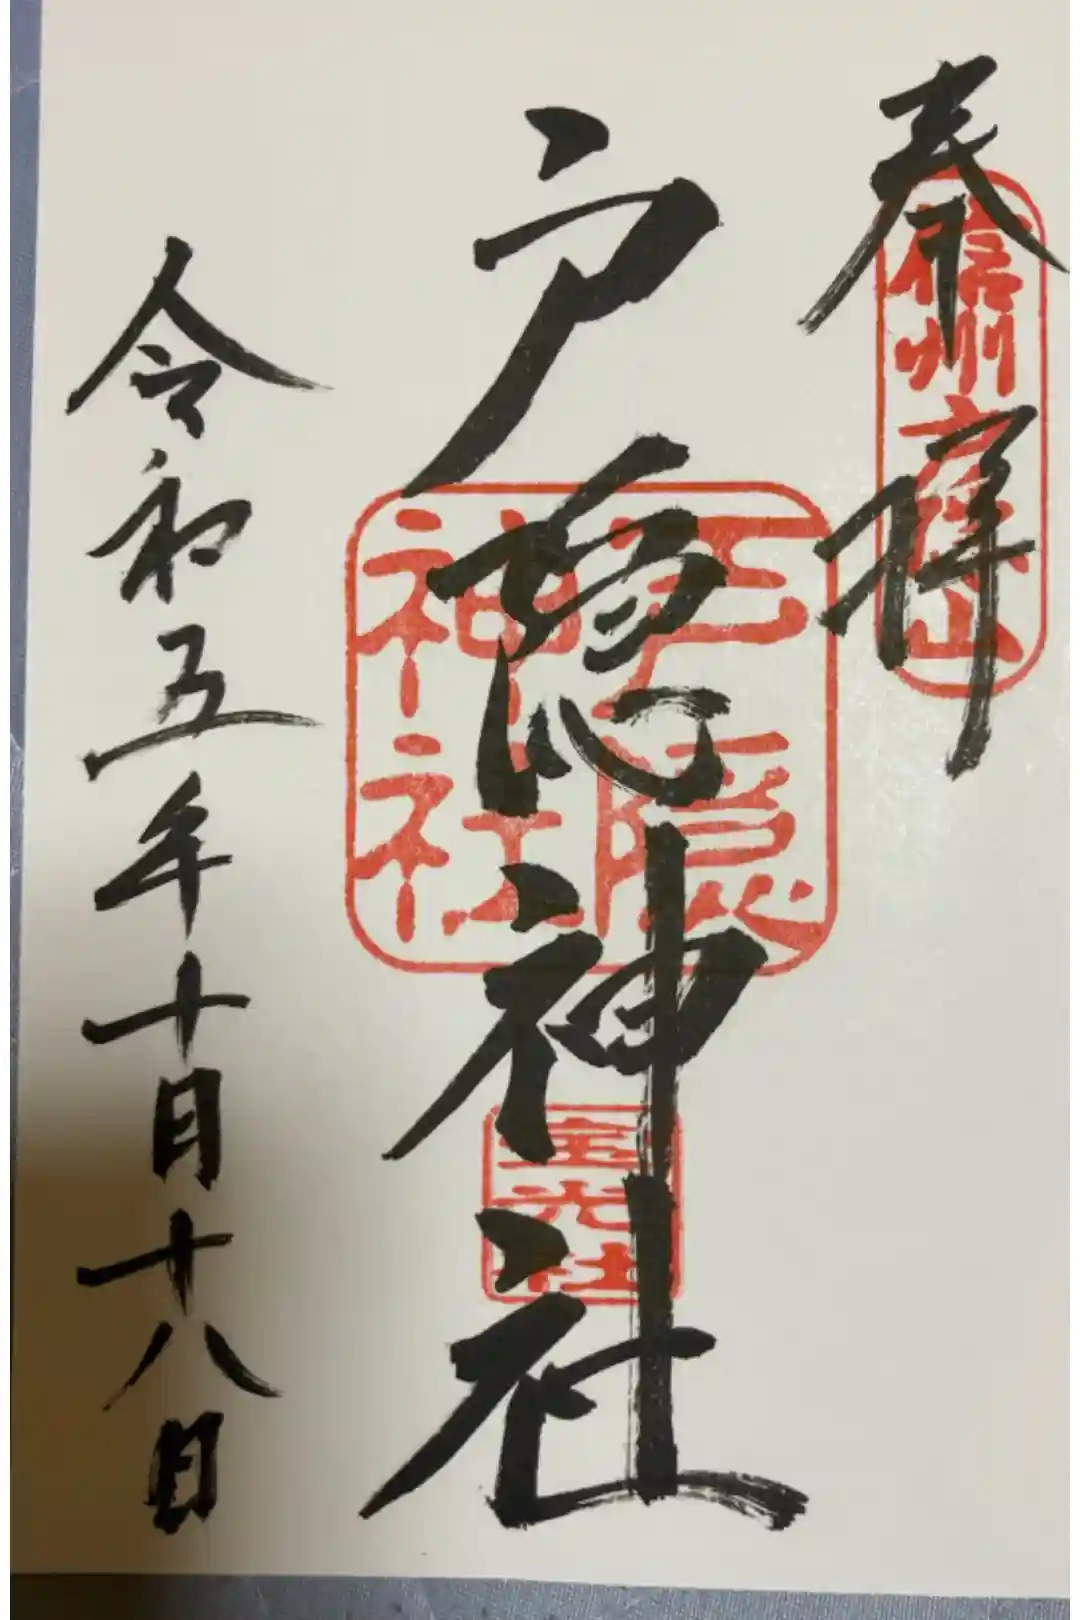 奉拝
信州戸隠山
戸隠神社
戸隠
神社
宝光社
令和五年十月十八日